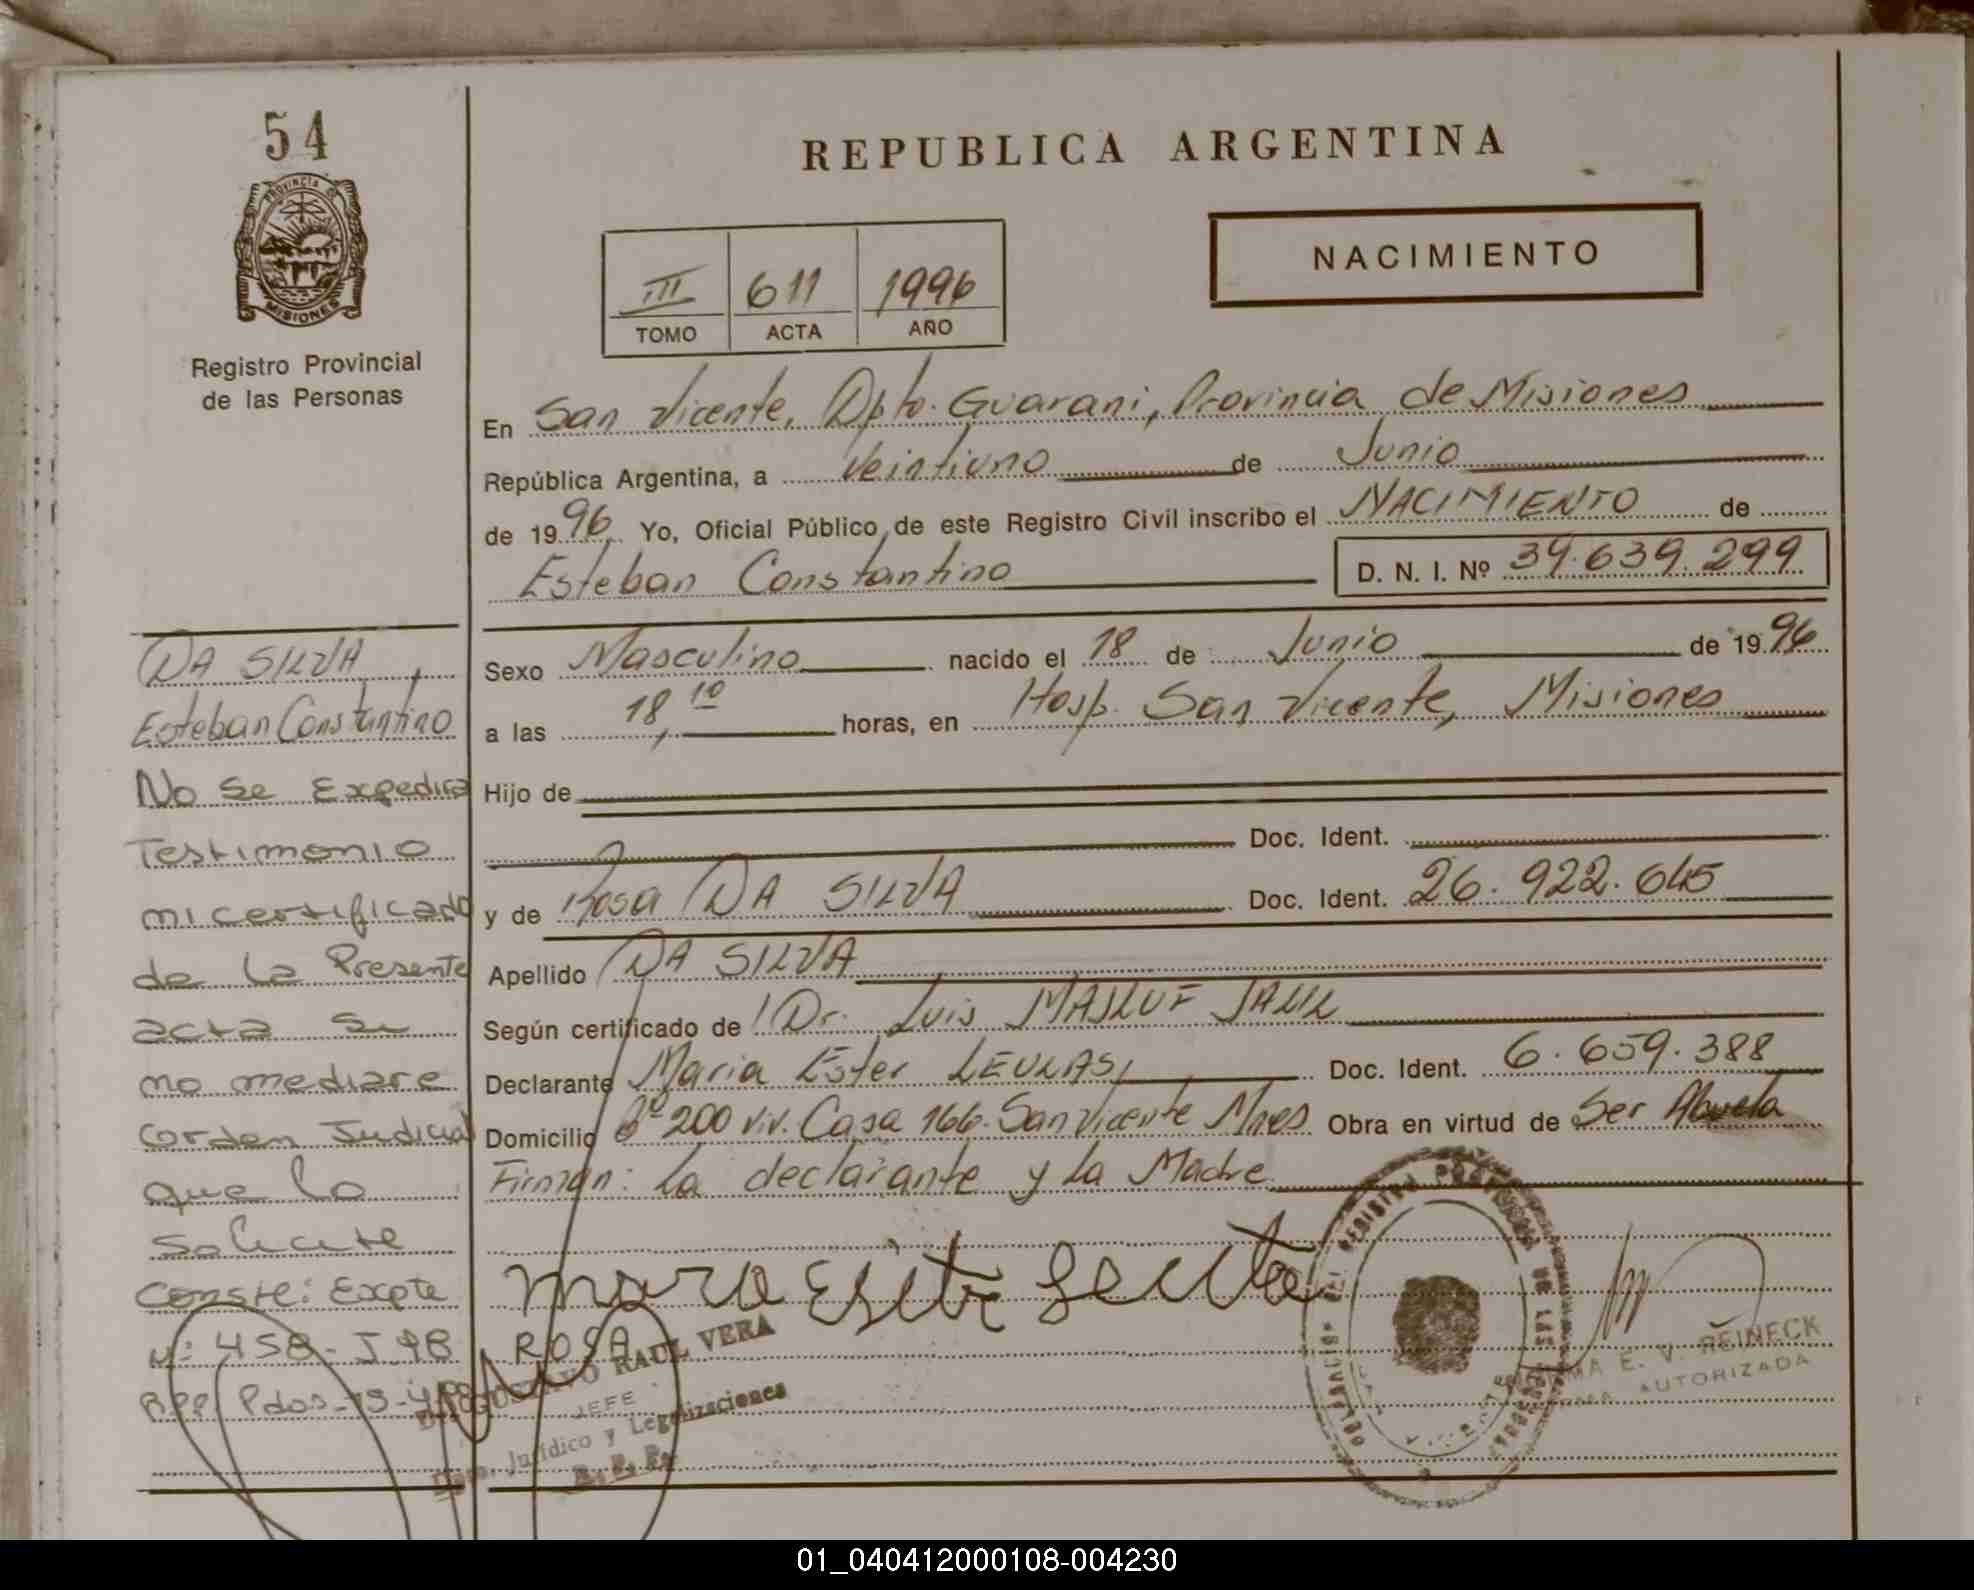 54
PROVINCIA DE
MISIONES
Registro Provincial
de las Personas
REPUBLICA ARGENTINA
NACIMIENTO
III 611 1996
TOMO ACTA AÑO
En San Vicente, Dpto. Guarani, Provincia de Misiones
República Argentina, a Veintiuno de Junio
de 1996 Yo, Oficial Público de este Registro Civil inscribo el NACIMIENTO de
Esteban Constantino D. N. I. Nº 39.639.299
Sexo Masculino nacido el 18 de Junio de 1996
a las 18,10 horas, en Hosp. San Vicente, Misiones
Hijo de
Doc. Ident.
y de Rosa DA SILVA Doc. Ident. 26.922.645
Apellido DA SILVA
Según certificado de Dr. Luis MASLUF JALIL
Declarante Maria Ester LEULAS Doc. Ident. 6.659.388
Domicilio Bº 200 viv. Casa 166. San Vicente Mnes Obra en virtud de Ser Abuela
Firman: La declarante y La Madre
ROSA
GUSTAVO RAUL VERA
JEFE
Dpto. Jurídico y Legalizaciones
R. P. P.
E. V. REINECK
FIRMA AUTORIZADA
DA SILVA,
Esteban Constantino
No se Expedira
Testimonio
ni certificado
de la Presente
acta si
no mediare
orden Judicial
que lo
solicite
Conste: Expte
Nº: 458-J-98
R.P.P. Pdas
01_040412000108-004230